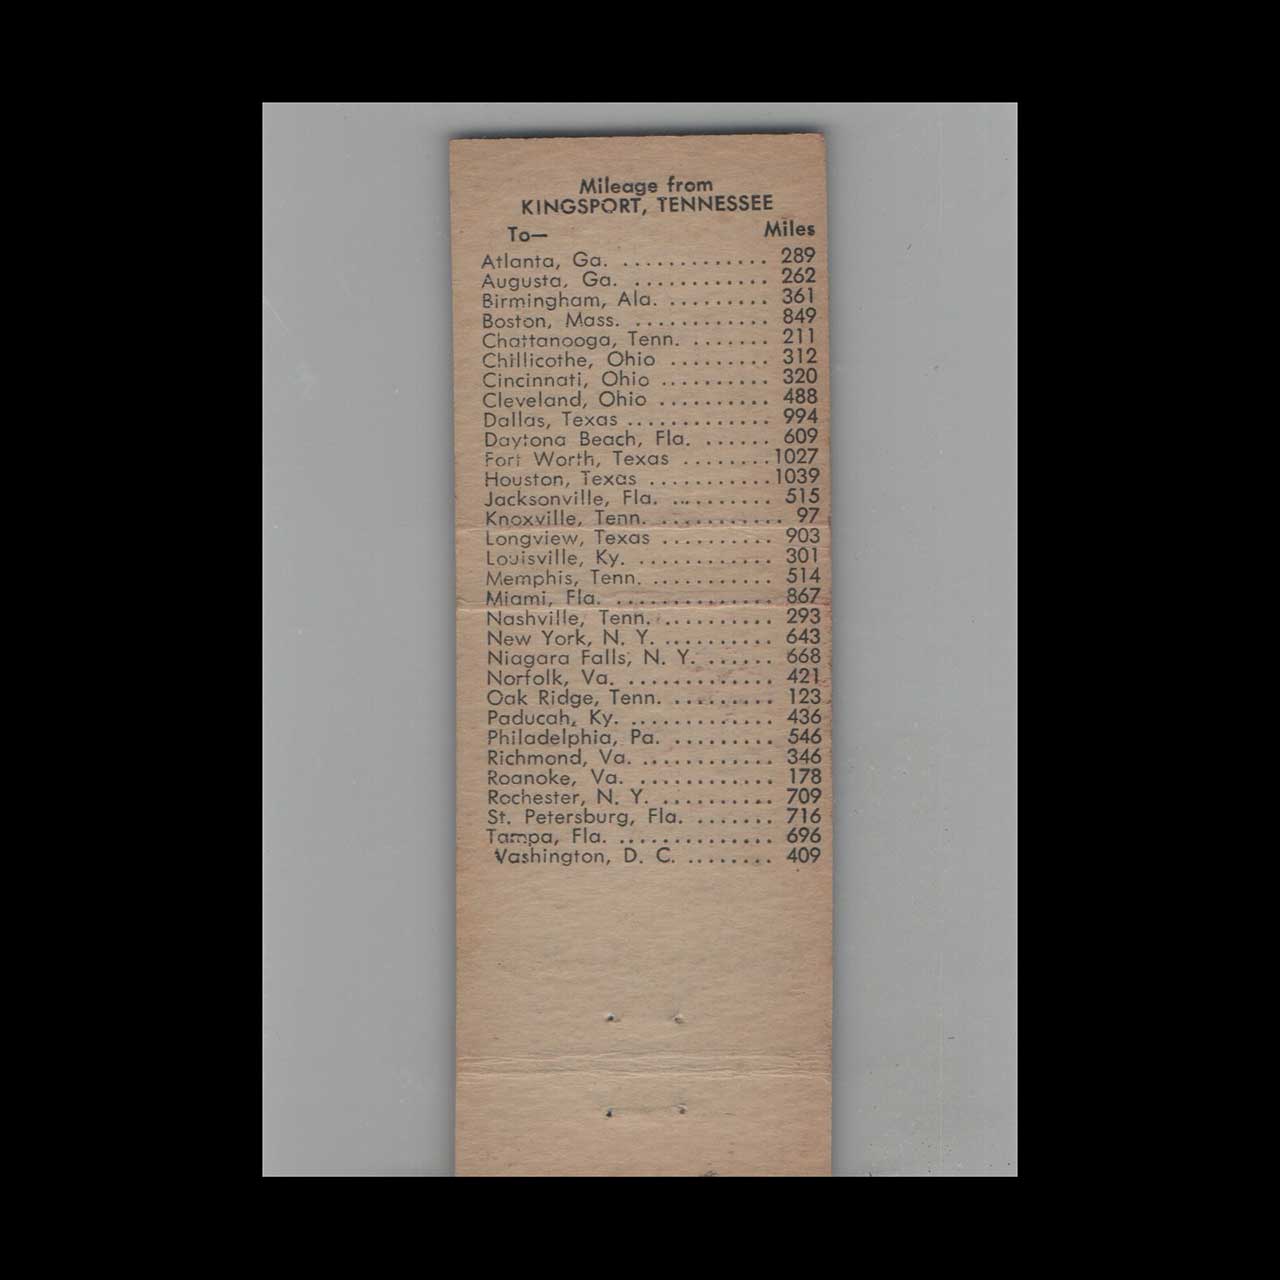 Mileage from
KINGSPORT, TENNESSEE
To— Miles
Atlanta, Ga. ............. 289
Augusta, Ga. ............ 262
Birmingham, Ala. ......... 361
Boston, Mass. ............ 849
Chattanooga, Tenn. ....... 211
Chillicothe, Ohio ......... 312
Cincinnati, Ohio .......... 320
Cleveland, Ohio .......... 488
Dallas, Texas ............. 994
Daytona Beach, Fla. ...... 609
Fort Worth, Texas ........ 1027
Houston, Texas ........... 1039
Jacksonville, Fla. ......... 515
Knoxville, Tenn. ........... 97
Longview, Texas .......... 903
Louisville, Ky. ............ 301
Memphis, Tenn. ........... 514
Miami, Fla. .............. 867
Nashville, Tenn. .......... 293
New York, N. Y. .......... 643
Niagara Falls, N. Y. ...... 668
Norfolk, Va. ............. 421
Oak Ridge, Tenn. ......... 123
Paducah, Ky. ............. 436
Philadelphia, Pa. ......... 546
Richmond, Va. ............ 346
Roanoke, Va. ............ 178
Rochester, N. Y. .......... 709
St. Petersburg, Fla. ....... 716
Tampa, Fla. .............. 696
Washington, D. C. ........ 409